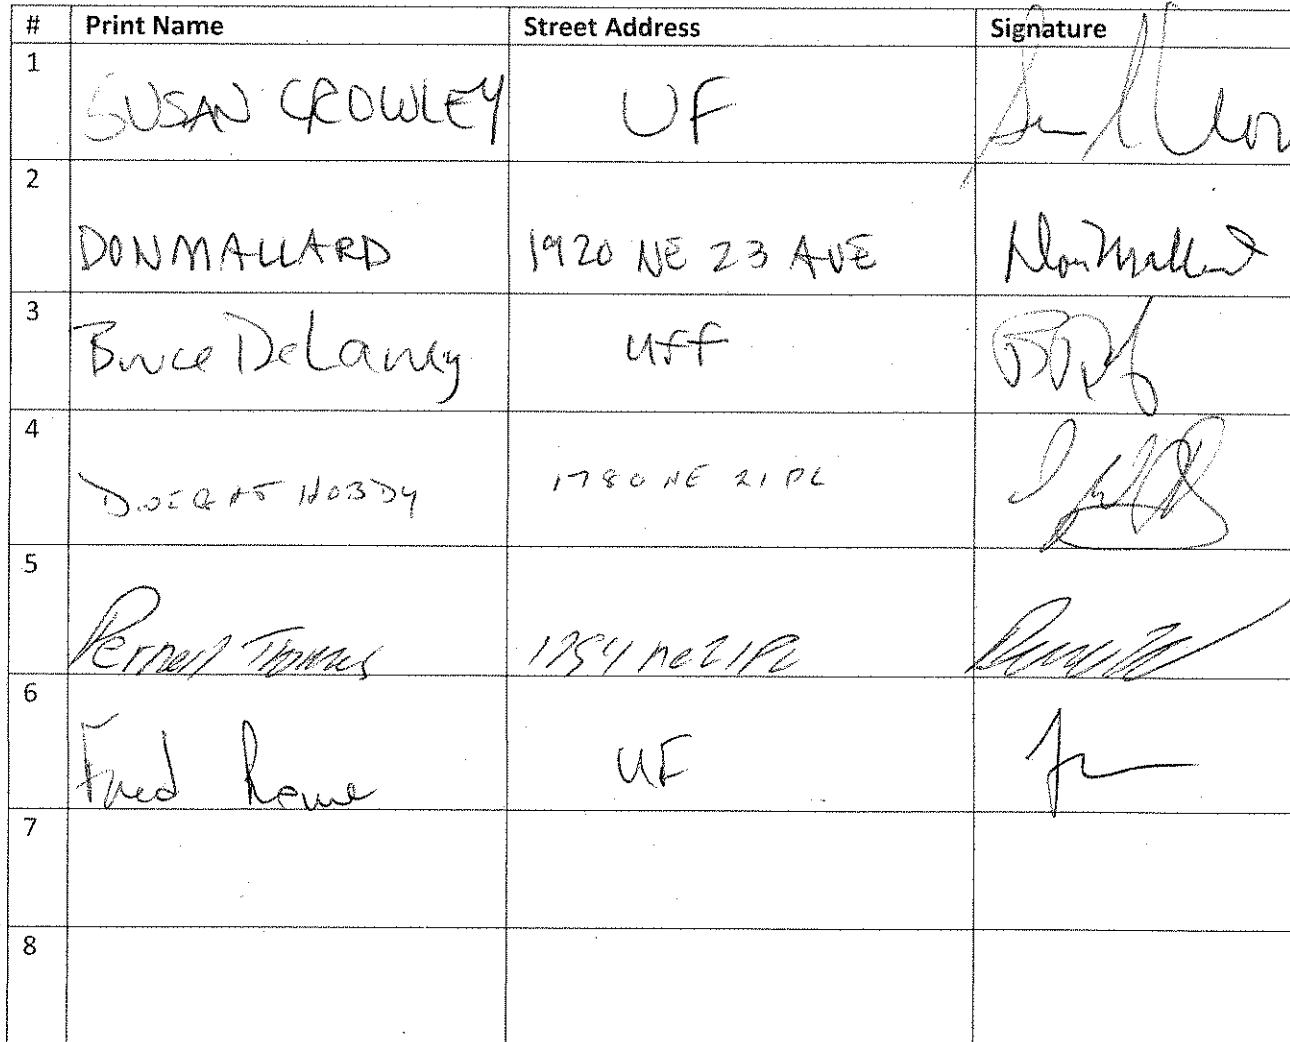 # Print Name Street Address Signature
1 SUSAN CROWLEY UF
2 DON MALLARD 1920 NE 23 AVE Don Mallard
3 Bruce DeLaney UFF
4 DWIGHT HOBDY 1780 NE 21 PL
5 Thomas 1754 ne 21 PL
6 Fred Rowe UF
7
8